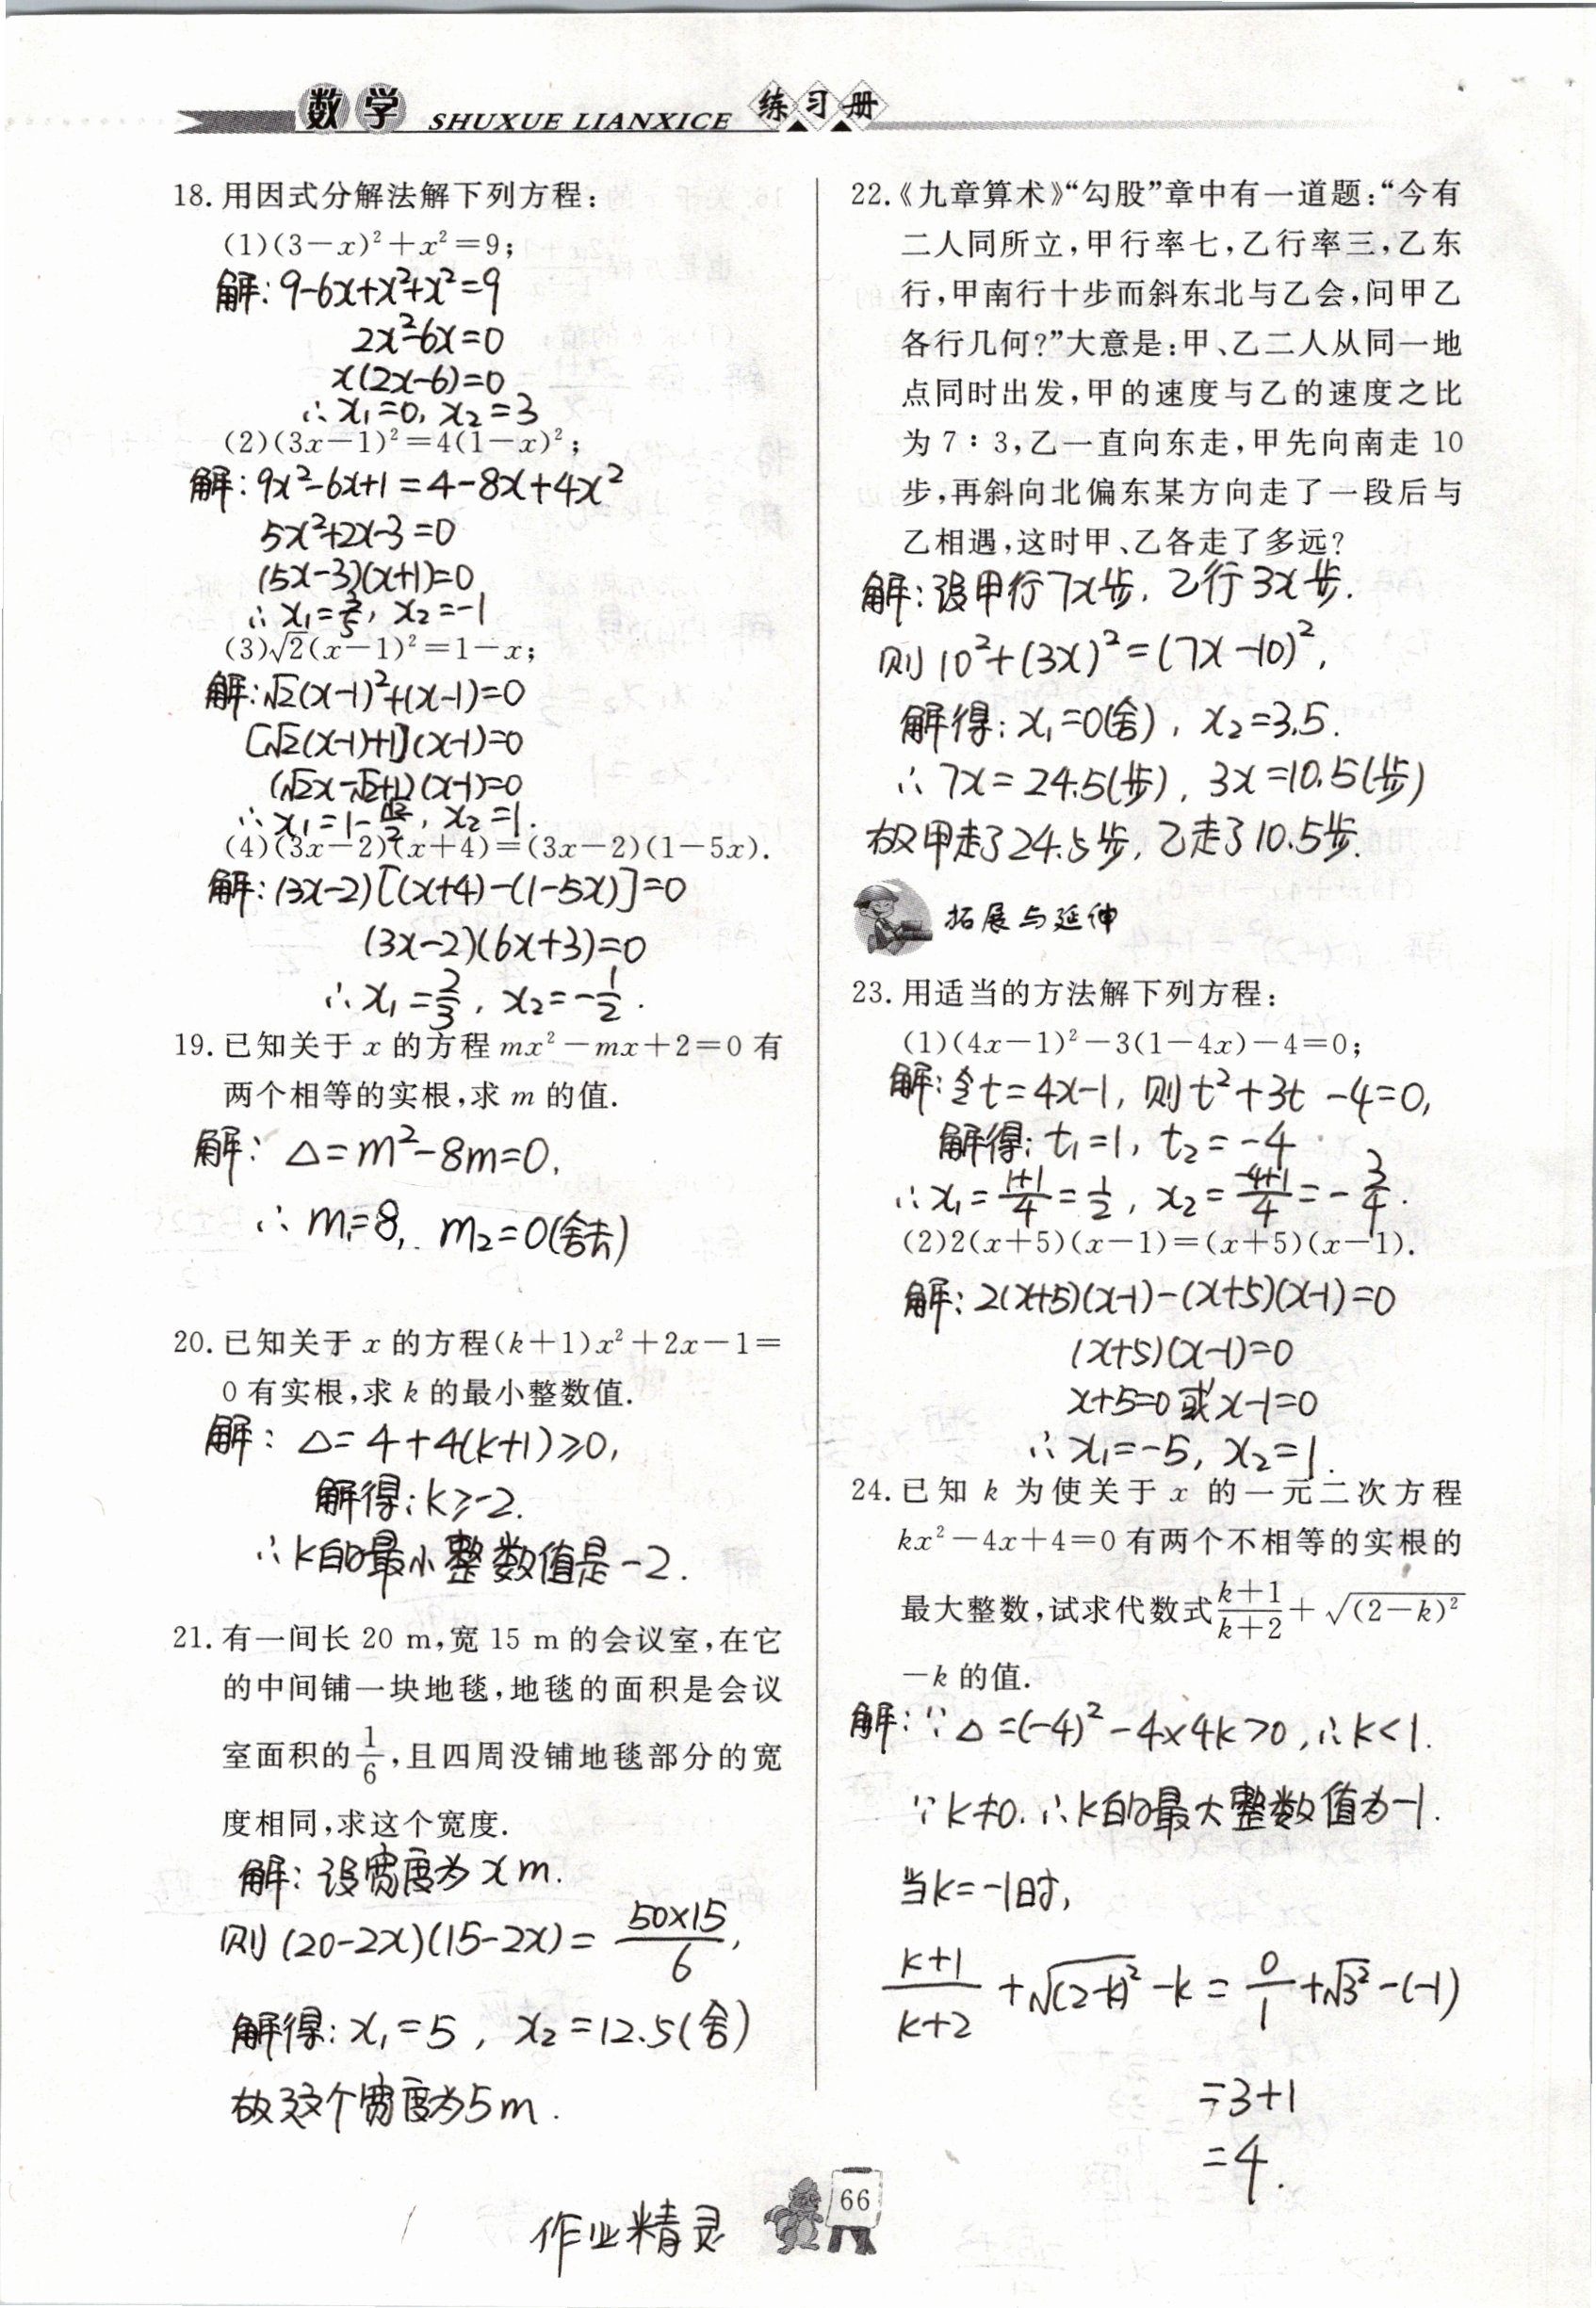 数学 SHUXUE LIANXICE 练习册
18. 用因式分解法解下列方程:
(1)(3-x)²+x²=9;
解: 9-6x+x²+x²=9
2x²-6x=0
x(2x-6)=0
∴ x₁=0, x₂=3
(2)(3x-1)²=4(1-x)²;
解: 9x²-6x+1=4-8x+4x²
5x²+2x-3=0
(5x-3)(x+1)=0
∴ x₁=3/5, x₂=-1
(3)√2(x-1)²=1-x;
解:√2(x-1)²+(x-1)=0
[√2(x-1)+1](x-1)=0
(√2x-√2+1)(x-1)=0
∴ x₁=1-√2/2, x₂=1.
(4)(3x-2)(x+4)=(3x-2)(1-5x).
解: (3x-2)[(x+4)-(1-5x)]=0
(3x-2)(6x+3)=0
∴ x₁=2/3, x₂=-1/2.
19. 已知关于 x 的方程 mx²-mx+2=0 有
两个相等的实根,求 m 的值.
解: △=m²-8m=0,
∴ m₁=8, m₂=0(舍去)
20. 已知关于 x 的方程(k+1)x²+2x-1=
0 有实根,求 k 的最小整数值.
解: △=4+4(k+1)≥0,
解得:k≥-2.
∴k的最小整数值是-2.
21. 有一间长 20 m,宽 15 m 的会议室,在它
的中间铺一块地毯,地毯的面积是会议
室面积的1/6,且四周没铺地毯部分的宽
度相同,求这个宽度.
解: 设宽度为xm.
则 (20-2x)(15-2x)=50×15/6,
解得: x₁=5, x₂=12.5(舍)
故这个宽度为5m.
22.《九章算术》“勾股”章中有一道题:“今有
二人同所立,甲行率七,乙行率三,乙东
行,甲南行十步而斜东北与乙会,问甲乙
各行几何?”大意是:甲、乙二人从同一地
点同时出发,甲的速度与乙的速度之比
为 7∶3,乙一直向东走,甲先向南走 10
步,再斜向北偏东某方向走了一段后与
乙相遇,这时甲、乙各走了多远?
解:设甲行7x步, 乙行3x步.
则 10²+(3x)²=(7x-10)²,
解得: x₁=0(舍), x₂=3.5.
∴ 7x=24.5(步), 3x=10.5(步)
故甲走了24.5步, 乙走了10.5步.
拓展与延伸
23. 用适当的方法解下列方程:
(1)(4x-1)²-3(1-4x)-4=0;
解:令t=4x-1, 则t²+3t-4=0,
解得: t₁=1, t₂=-4
∴ x₁=(1+1)/4=1/2, x₂=(-4+1)/4=-3/4.
(2)2(x+5)(x-1)=(x+5)(x-1).
解: 2(x+5)(x-1)-(x+5)(x-1)=0
(x+5)(x-1)=0
x+5=0或x-1=0
∴ x₁=-5, x₂=1.
24. 已知 k 为使关于 x 的一元二次方程
kx²-4x+4=0 有两个不相等的实根的
最大整数,试求代数式(k+1)/(k+2)+√(2-k)²
-k 的值.
解: ∵ △=(-4)²-4×4k>0, ∴k<1.
∵k≠0. ∴k的最大整数值为-1.
当k=-1时,
(k+1)/(k+2)+√(2-k)²-k=0/1+√3²-(-1)
=3+1
=4.
作业精灵
66